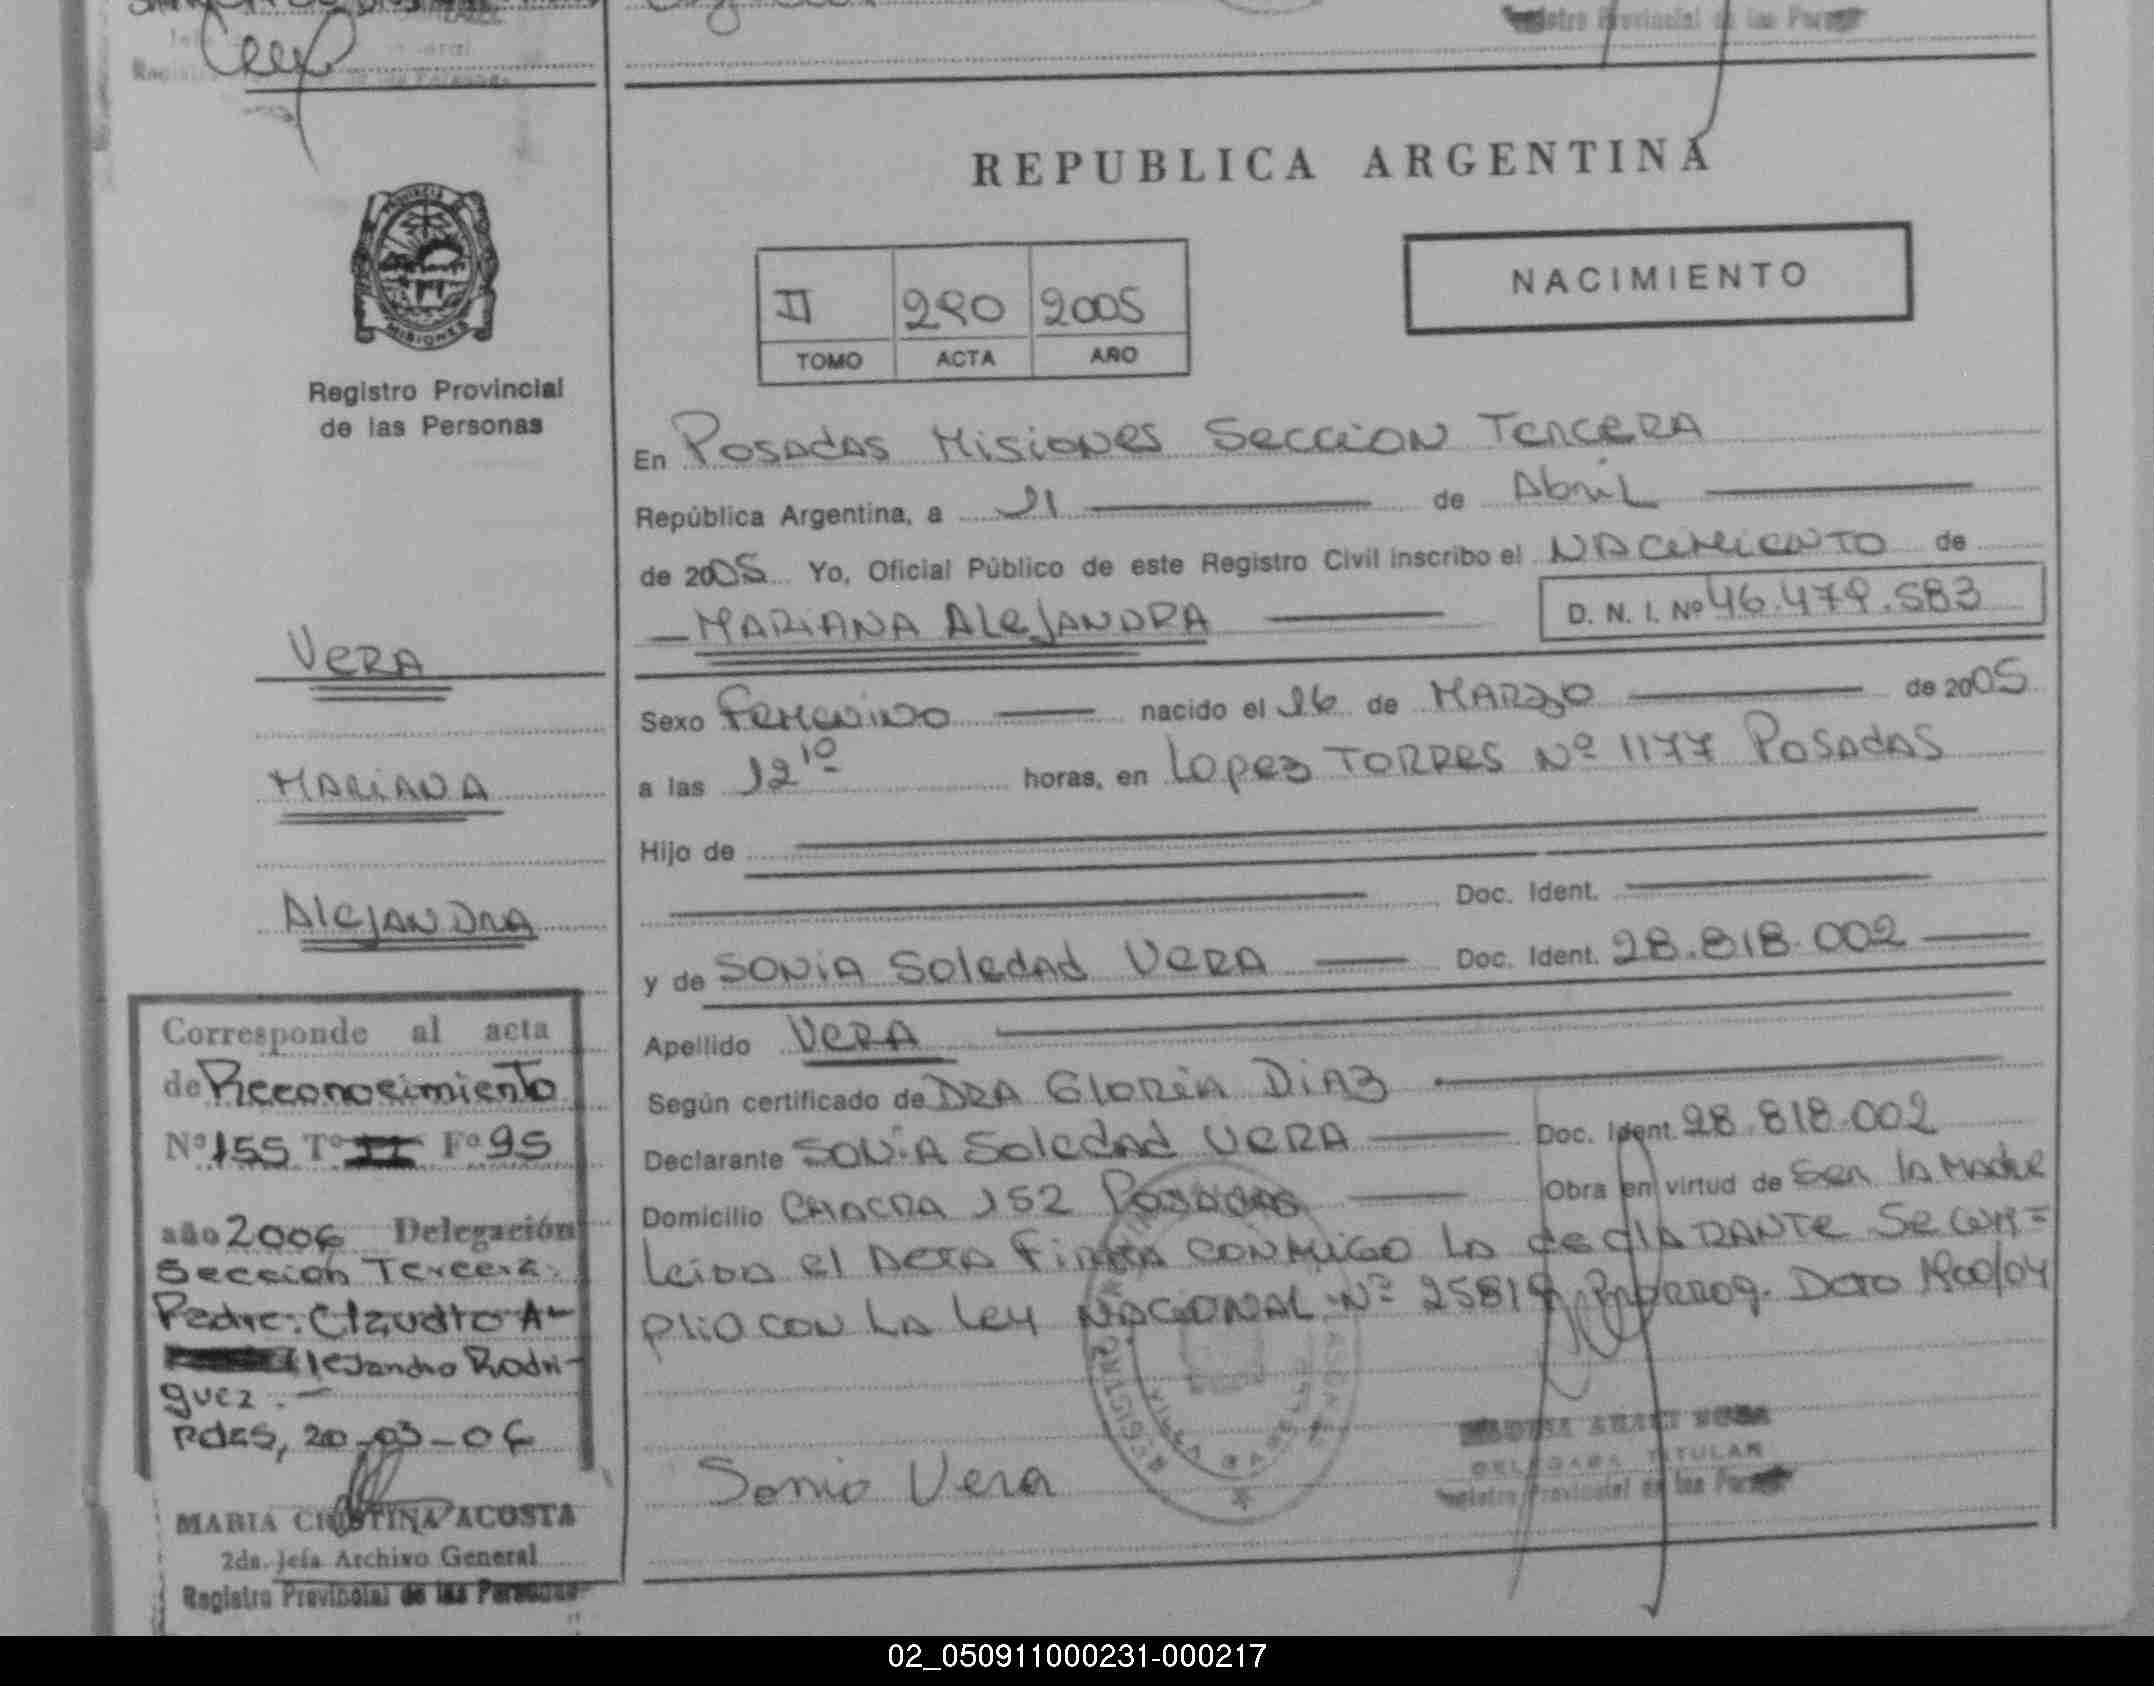 REPUBLICA ARGENTINA
NACIMIENTO
II 290 2005
TOMO ACTA AÑO
PROVINCIA
MISIONES
Registro Provincial
de las Personas
VERA
MARIANA
ALEJANDRA
Corresponde al acta
de Reconocimiento
Nº 155 Tº II Fº 95
año 2006 Delegación
Sección Tercera.
Padre: Claudio A-
lejandro Rodri-
guez.-
Pdas, 20-03-06
MARIA CRISTINA ACOSTA
2da. Jefa Archivo General
Registro Provincial de las Personas
En Posadas Misiones Seccion Tercera
República Argentina, a 21 de Abril
de 2005 Yo, Oficial Público de este Registro Civil inscribo el NACIMIENTO de
MARIANA ALEJANDRA D. N. I. Nº 46.479.583
Sexo Femenino nacido el 16 de MARZO de 2005
a las 12 10 horas, en Lopez TORRES Nº 1177 Posadas
Hijo de
Doc. Ident.
y de SONIA Soledad VERA Doc. Ident. 28.818.002
Apellido VERA
Según certificado de DRA GLORIA DIAZ
Declarante SONIA Soledad VERA Doc. Ident. 28.818.002
Domicilio CHACRA 152 Posadas Obra en virtud de Ser la Madre
Leida el Acta Firma CONMIGO LA declaRANTE Se cum=
plio CON LA Ley NACIONAL Nº 25819 Prorrog. Dcto 1900/04
Sonia Vera
DELEGADA TITULAR
Registro Provincial de las Personas
02_050911000231-000217